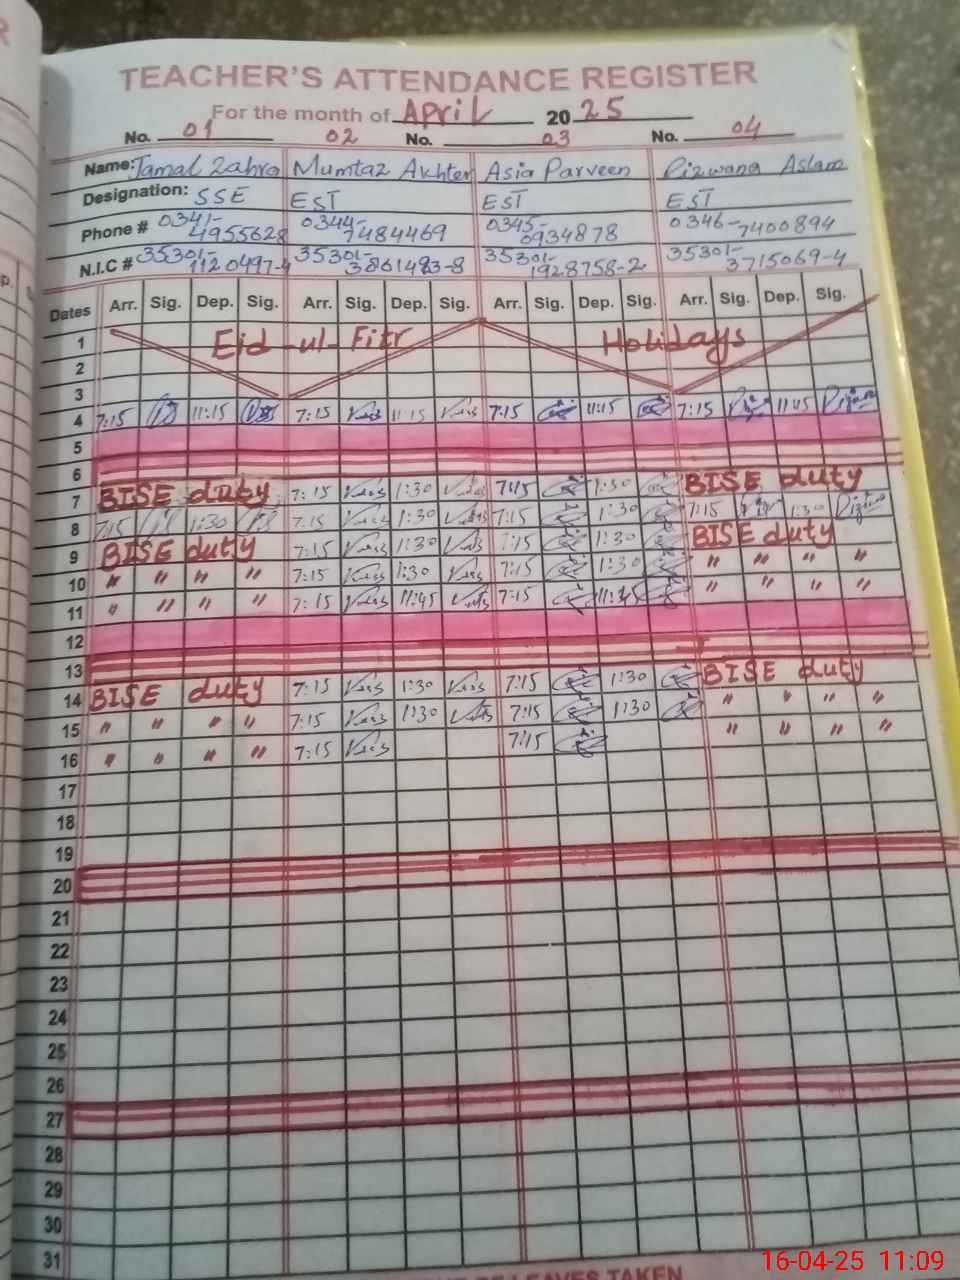 TEACHER'S ATTENDANCE REGISTER
For the month of April 2025
No. 01 02 No. 03 No. 04
Name: Jamal Zahra Mumtaz Akhter Asia Parveen Rizwana Aslam
Designation: SSE EST EST EST
Phone # 0341-4955628 0344-7484469 0345-0934878 0346-7400894
N.I.C # 35301-1120497-4 35301- 35301-1928758-2 35301-3715069-4
Dates Arr. Sig. Dep. Sig. Arr. Sig. Dep. Sig. Arr. Sig. Dep. Sig. Arr. Sig. Dep. Sig.
1 Eid-ul-Fitr Holidays
2
3
4 7:15 11:15 7:15 11:15 7:15 11:15 7:15 11:15
5
6
7 BISE duty 7:15 1:30 7:15 1:30 BISE duty
8 7:15 1:30 7:15 1:30 7:15 1:30 7:15 1:30
9 BISE duty 7:15 1:30 7:15 1:30 BISE duty
10 " " " " 7:15 1:30 7:15 1:30 " " " "
11 " " " " 7:15 11:45 7:15 11:45 " " " "
12
13
14 BISE duty 7:15 1:30 7:15 1:30 BISE duty
15 " " " " 7:15 1:30 7:15 1:30 " " " "
16 " " " " 7:15 7:15 " " " "
17
18
19
20
21
22
23
24
25
26
27
28
29
30
31
OF LEAVES TAKEN
16-04-25 11:09